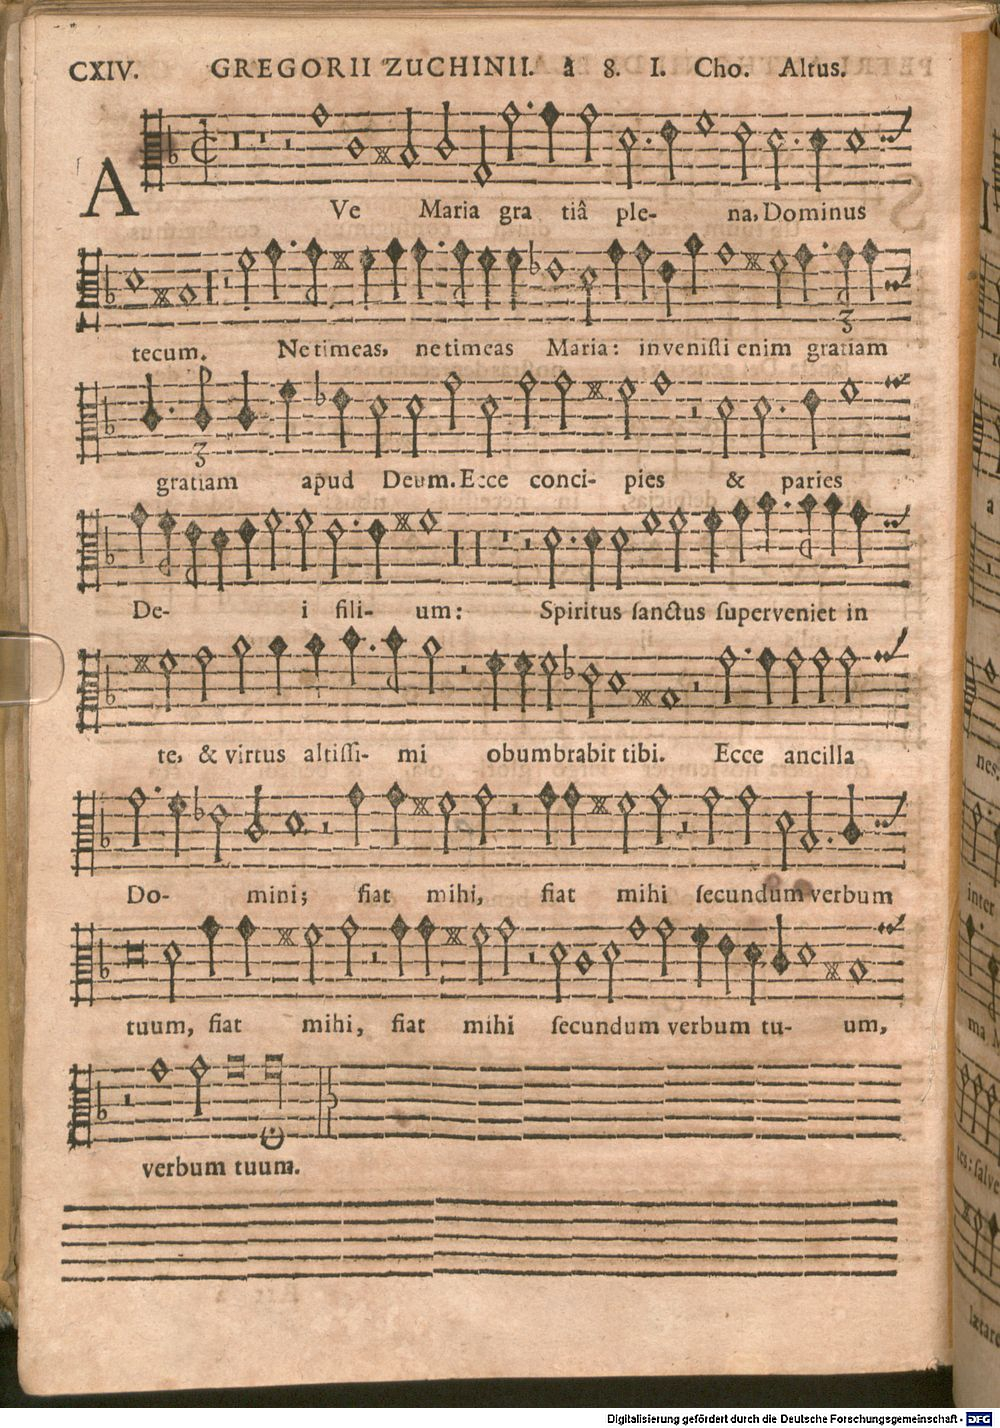 CXIV. GREGORII ZUCHINII. à 8. I. Cho. Altus.
AVe Maria gra tiâ ple- na, Dominus
tecum. Ne timeas, ne timeas Maria: inveniſti enim gratiam
gratiam apud Deum. Ecce conci- pies & paries
De- i fili- um: Spiritus ſanctus ſuperveniet in
te, & virtus altiſſi- mi obumbrabit tibi. Ecce ancilla
Do- mini; fiat mihi, fiat mihi ſecundum verbum
tuum, fiat mihi, fiat mihi ſecundum verbum tu- um,
verbum tuum.
a
nes:
inter
ma
tes: ſalve
Digitalisierung gefördert durch die Deutsche Forschungsgemeinschaft - DFG